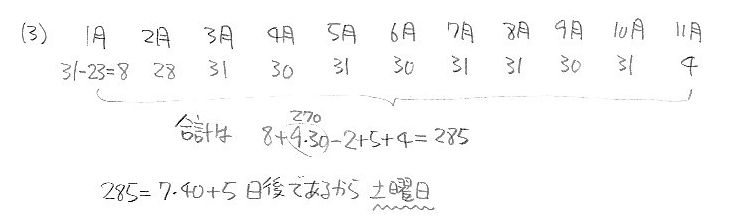 (3) 1月 2月 3月 4月 5月 6月 7月 8月 9月 10月 11月
31-23=8 28 31 30 31 30 31 31 30 31 4
270
合計は 8+9・30-2+5+4=285
285=7・40+5 日後であるから 土曜日